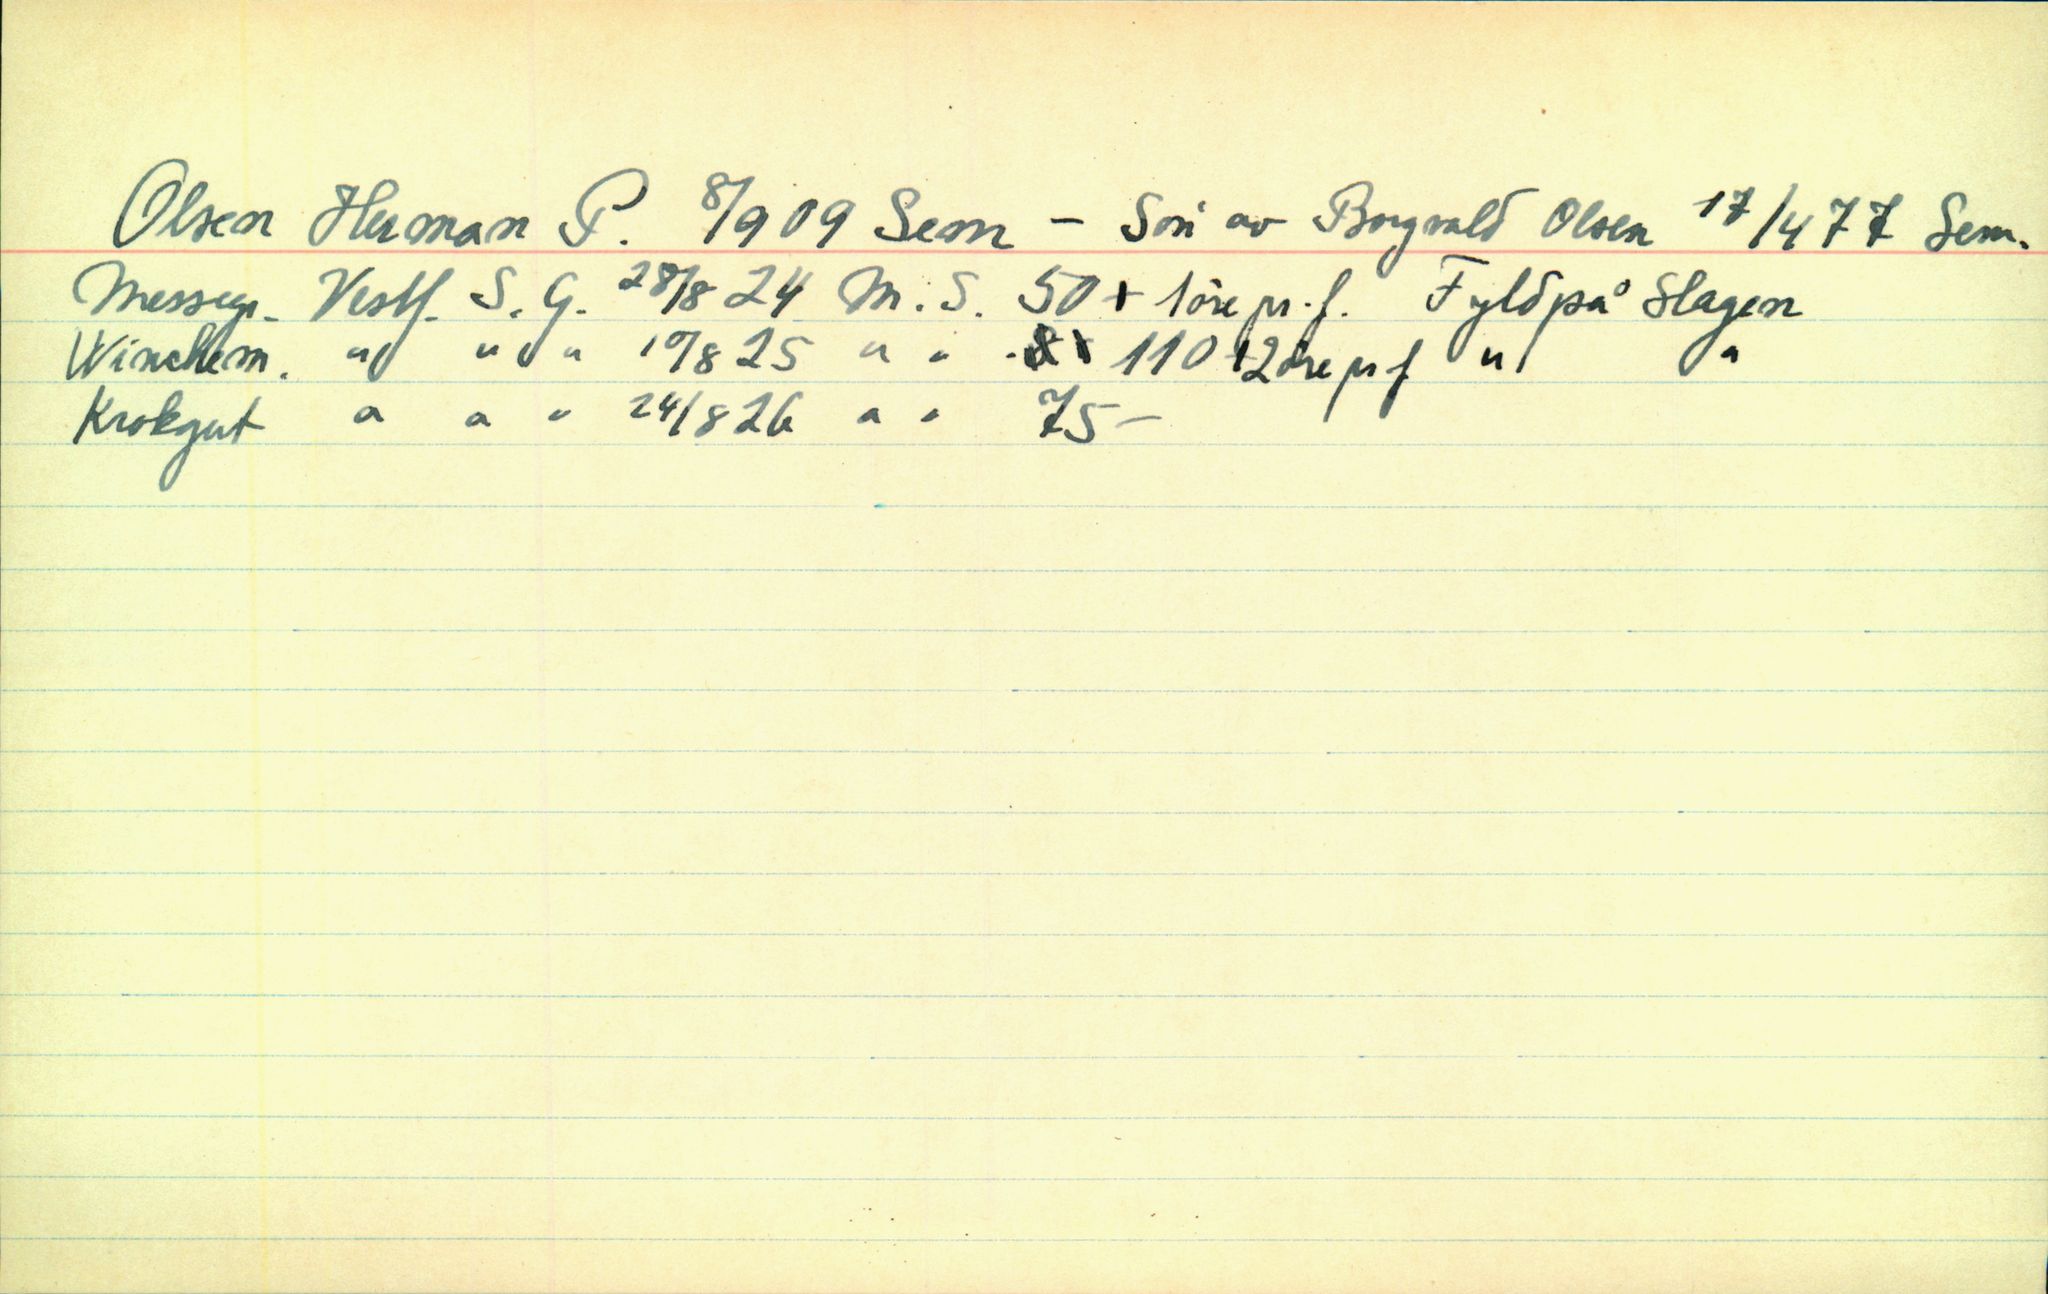 Olsen Herman P. 8/9 09 Sem – Søn av Borgvald Olsen 17/4 77 Sem.
Messegr. Vestf. S. G. 28/8 24 M. S. 50 + 1 öre pr. f. Fyldpå Slagen
Winchem. " " " 10/8 25 " " 110 + 2 öre pr f " "
Krokgut " " " 24/8 26 " " 75 –